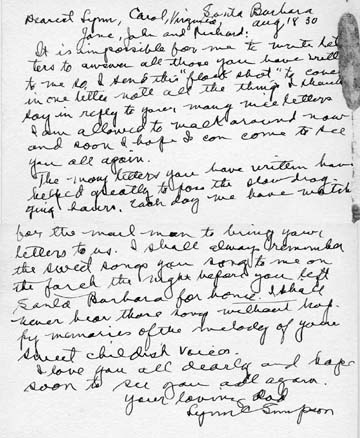 Santa Barbara
Dearest Lynn, Carol, Virginia, Aug 18 30
Jane, John and Richard:
It is impossible for me to write let
ters to answer all those you have written
to me so I send this "blank shot" to cover
in one letter all the things I should
say in reply to your many nice letters
I am allowed to walk around now
and soon I hope I can come to see
you all again.
The many letters you have written have
helped greatly to pass the slow drag-
ging hours. Each day we have watch
for the mail man to bring your
letters to us. I shall always remember
the sweet songs you sang to me on
the porch the night before you left
Santa Barbara for home. I shall
never hear those song without hap-
py memories of the melody of your
sweet childish voices.
I love you all dearly and hope
soon to see you all again.
Your loving Dad
Lynn C Simpson